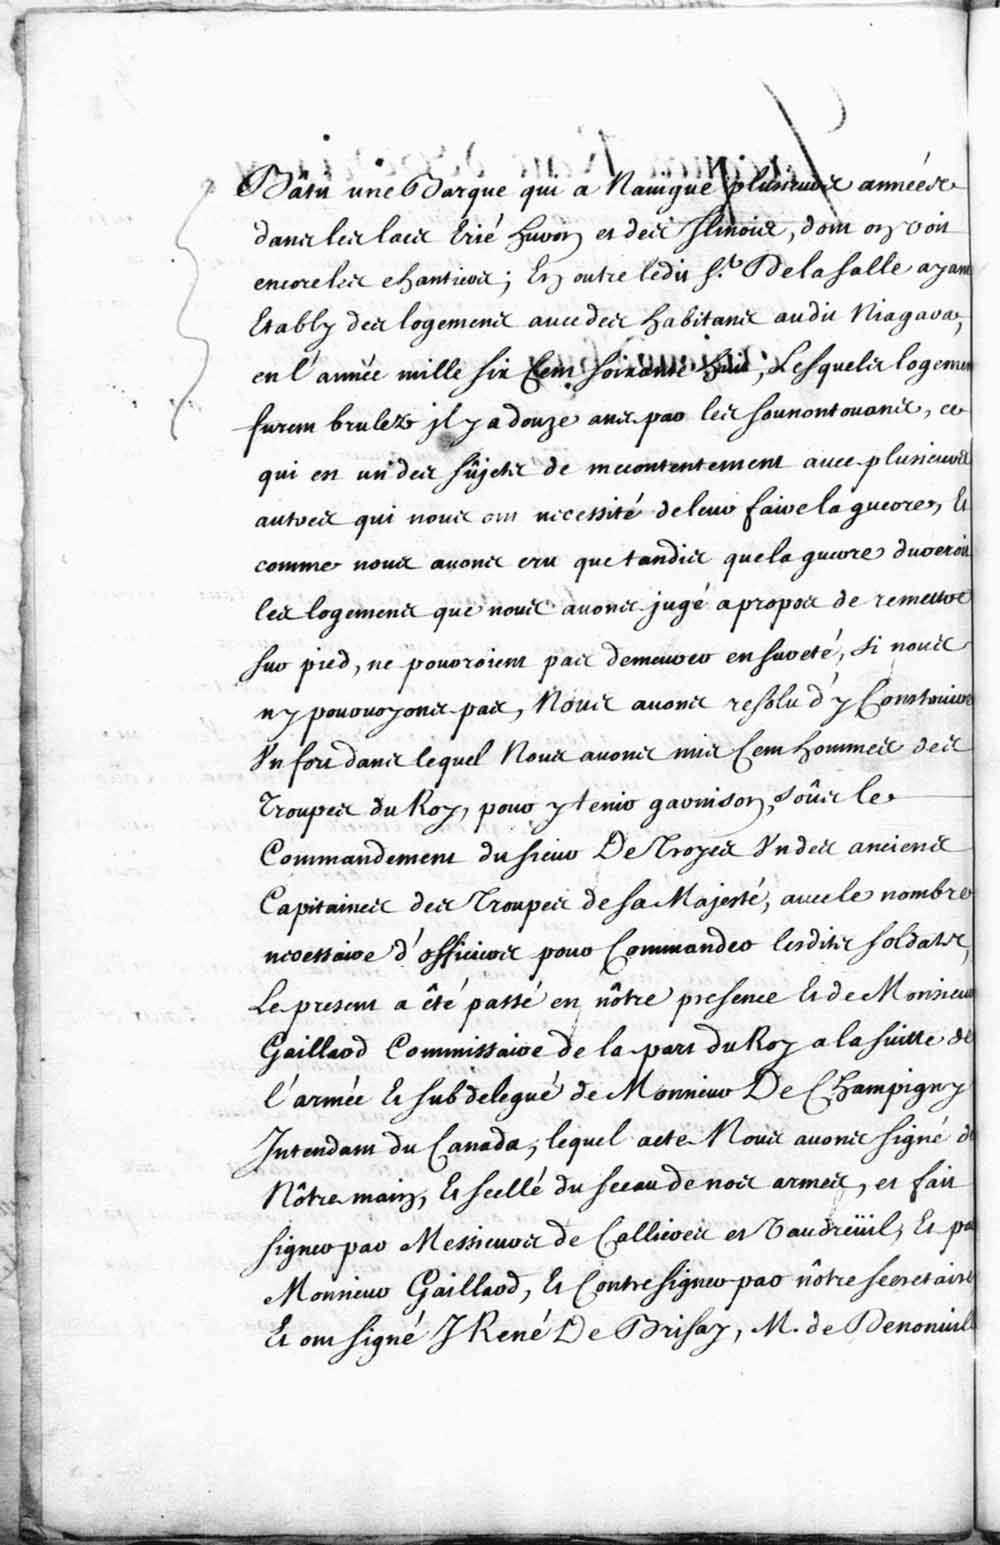 Bâtir une Barque qui a Nauigué plusieurs années
dans les lacs Erié huron et des Ilinois, dont on voit
encore les chantiers; En outre ledit Sr. De la Salle ayant
Etably des logemens auec des habitans audit Niagara,
en l'année mille six Cent soixante huit, Lesquels logemen
furent brulez il y a douze ans par les sounontouans, ce
qui est un des sûjets de mecontentement auec plusieurs
autres qui nous ont necessité de leur faire la guerre, Et
comme nous auons cru que tandis que la guerre dureroit
les logemens que nous auons jugé a propos de remettre
sur pied, ne pouroient pas demeurer en sureté, si nous
ny pouruoyons pas, Nous auons resolu d'y Construire
Un fort dans lequel Nous auons mis Cent hommes des
Troupes du Roy, pour y tenir garnison, soûs le
Commandement du sieur De Troyes Un des anciens
Capitaines des Troupes de sa Majesté, auec le nombre
necessaire d'officiers pour Commander lesdits soldats,
Le present a êté passé en nôtre presence Et de Monsieur
Gaillard Commissaire de la part du Roy a la suitte de
l'armée Et subdelegué de Monsieur De Champigny
Intendant du Canada, lequel acte Nous auons signé de
Nôtre main, Et scellé du sceau de nos armes, et fait
signer par Messieurs de Callieres et Vaudreüil, Et par
Monsieur Gaillard, Et Contresigner par nôtre secretaire
Et ont signé J René De Brisay, M. de Denonuile